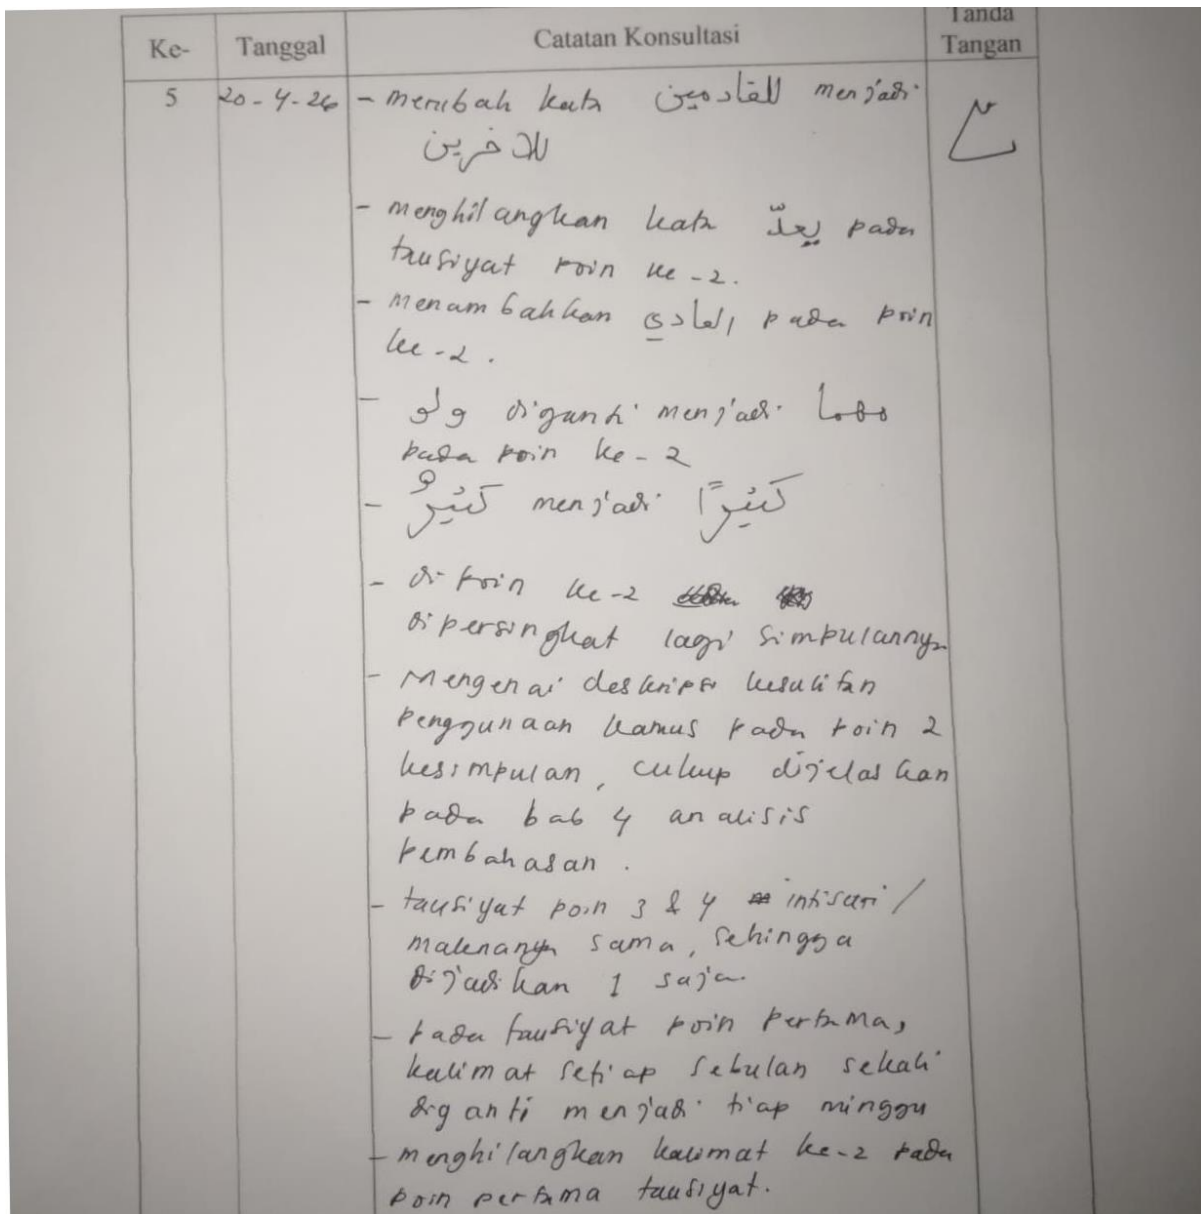 Ke- Tanggal Catatan Konsultasi Tanda Tangan
5 20-4-26 - merubah kata للقادمين menjadi
للاخرين
- menghilangkan kata يعدّ pada
tausiyat poin ke-2.
- menambahkan العادي pada poin
ke-2.
- ولو diganti menjadi مهما
pada poin ke-2
- كثيرٌ menjadi كثيرًا
- di poin ke-2
dipersingkat lagi simpulannya
- Mengenai deskripsi kesulitan
penggunaan kamus pada poin 2
kesimpulan, cukup dijelaskan
pada bab 4 analisis
pembahasan.
- tausiyat poin 3 & 4 intisari/
maknanya sama, sehingga
dijadikan 1 saja.
- pada tausiyat poin pertama,
kalimat setiap sebulan sekali
diganti menjadi tiap minggu
- menghilangkan kalimat ke-2 pada
poin pertama tausiyat.